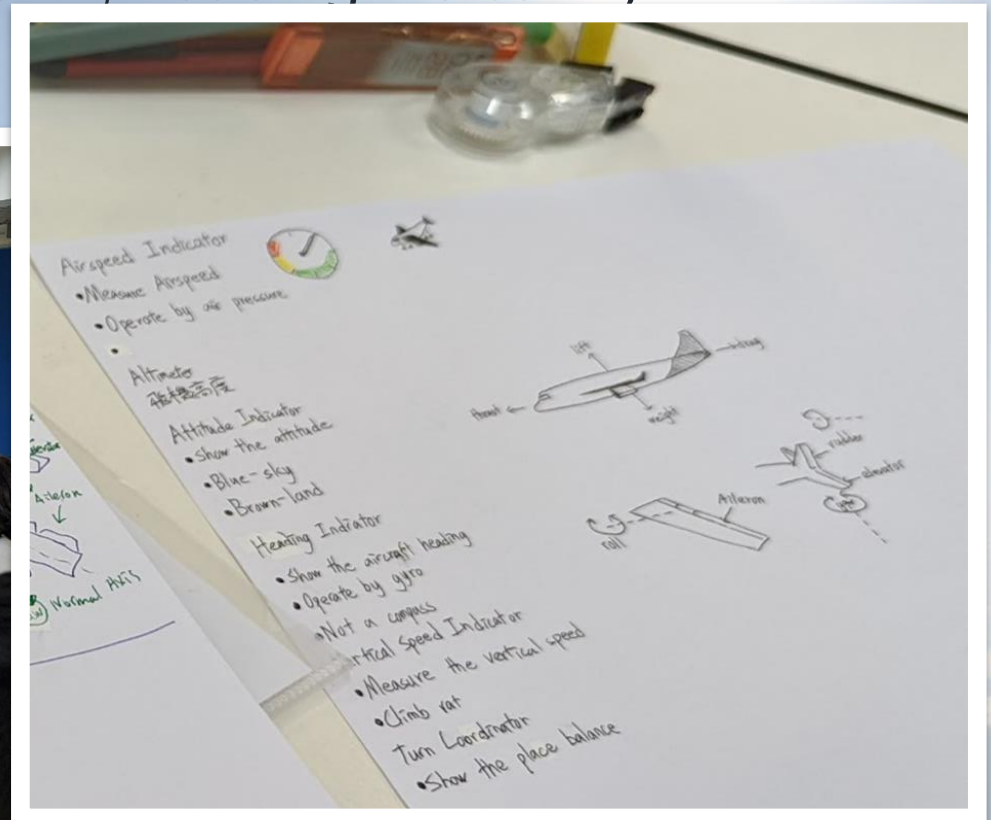 Airspeed Indicator
•Measure Airspeed
•Operate by air pressure
•
Altimeter
高度
Attitude Indicator
•Show the attitude
•Blue-sky
•Brown-land
Heading Indiator
•Show the aircraft heading
•Operate by gyro
•Not a compass
rtical Speed Indicator
•Measure the vertical speed
•Climb rat
Turn Coordinator
•Show the place balance
lift
drag
thrust
weight
rudder
elevator
Aileron
roll
Aileron
Normal Axis